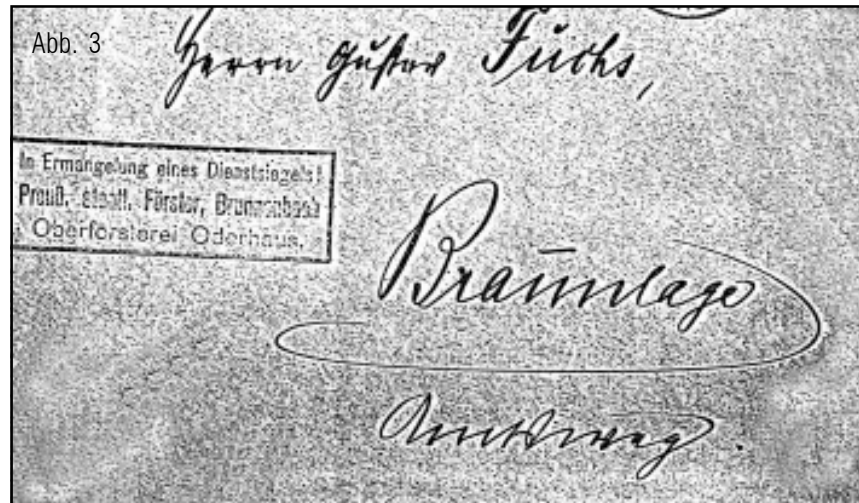 Abb. 3
Herrn Gustav Fuchs,
In Ermangelung eines Dienstsiegels!
Preuß. staatl. Förster, Brunnenbach
Oberförsterei Oderhaus.
Braunlage
Amtsweg.